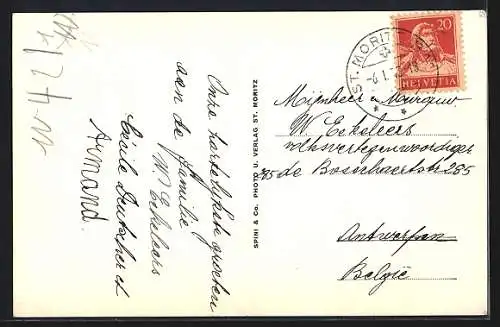 Onze hartelijkste groeten
aan de familie
W. Eekeleers
Cécile Deutscher et
Armand.
SPINI & Co. PHOTO U. VERLAG ST. MORITZ
ST. MORITZ
-6.I.
20
HELVETIA
Mijnheer
W. Eekeleers
volksvertegenwoordiger
de Bosschaertstr 265
Antwerpen
België